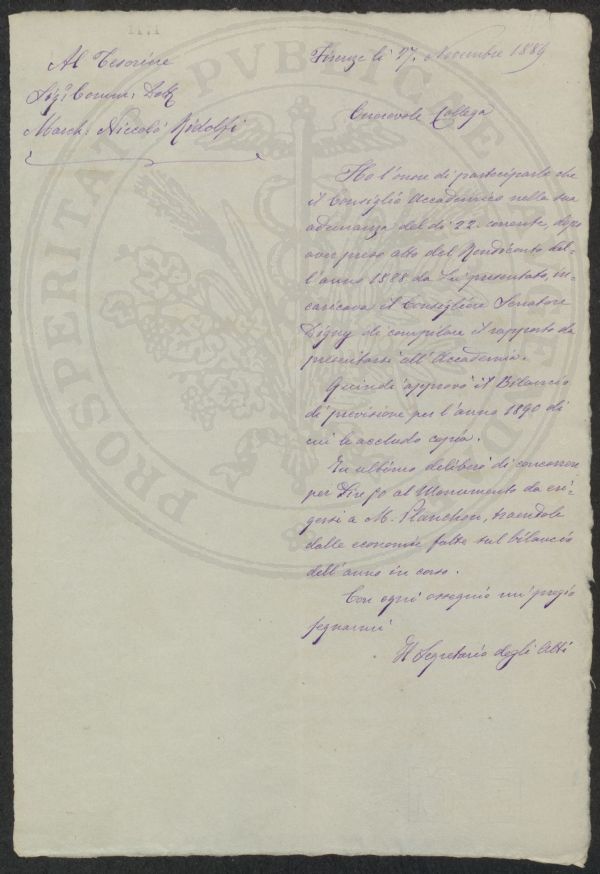 Al Tesoriere
Sig.r Comm: Dott
March: Niccolò Ridolfi
Firenze lì 27. Novembre 1889
Onorevole Collega
Ho l'onore di parteciparle che
il Consiglio Accademico nella sua
adunanza del dì 22. corrente, dopo
aver preso atto del Rendiconto del-
l'anno 1888 da Lei presentato, in-
caricava il Consigliere Senatore
Digny di compilare il rapporto da
presentarsi all'Accademia.
Quindi approvò il Bilancio
di previsione per l'anno 1890 di
cui le accludo copia.
In ultimo deliberò di concorrere
per Lire 50 al Monumento da eri-
gersi a M. Planchon, traendole
dalle economie fatte sul bilancio
dell'anno in corso.
Con ogni ossequio mi pregio
segnarmi
Il Segretario degli Atti
PROSPERITATI PUBLICAE